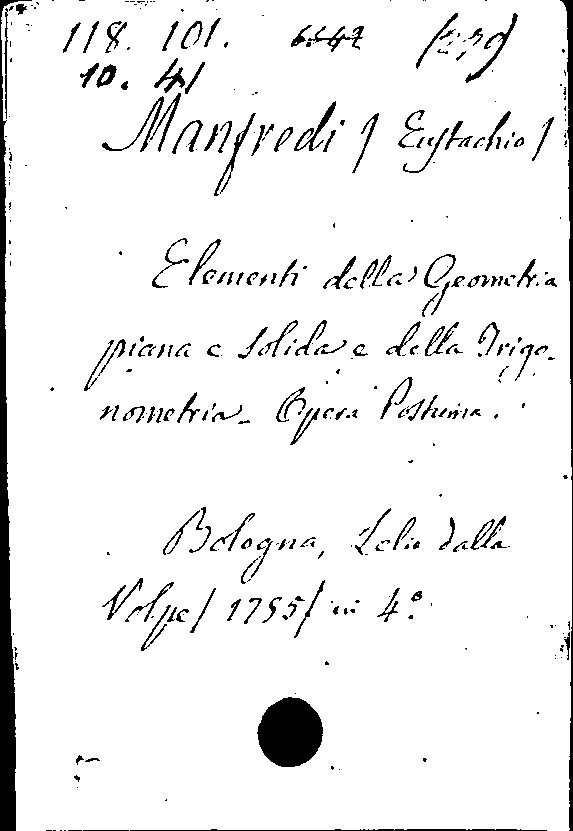 118. 101. 6542 (239)
10. 41
Manfredi / Eustachio /
Elementi della Geometria
piana e solida e della Trigo-
nometria - Opera Postuma.
Bologna, Lelio dalla
Volpe / 1755 / in 4.º